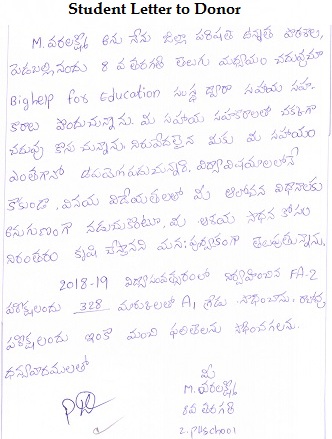 Student Letter to Donor
M. వరలక్ష్మి అను నేను జిల్లా పరిషత్ ఉన్నత పాఠశాల,
నందు 8 వ తరగతి తెలుగు మాధ్యమం చదువుతూ
Bighelp for Education సంస్థ ద్వారా సహాయ సహ-
కారాలు పొందుచున్నాను. మీ సహాయ సహకారాలతో చక్కగా
చదువు కొను చున్నాను. నిరుపేదలైన మాకు మీ సహాయం
ఎంతగానో ఉపయోగపడుచున్నది. విద్యావిషయాలలోనే
కాకుండా, వినయ విధేయతలలో మీ ఆలోచన విధానాలకు
అనుగుణంగా నడుచుకుంటూ, మీ ఆశయ సాధన కోసం
నిరంతరం కృషి చేస్తానని మనఃపూర్వకంగా తెలుపుతున్నాను.
2018-19 విద్యాసంవత్సరంలో నిర్వహించిన FA-2
పరీక్షలందు 328 మార్కులతో A1 గ్రేడు సాధించాను.
పరీక్షలందు ఇంకా మంచి ఫలితాలను సాధించగలను.
ధన్యవాదములతో
మీ
M. వరలక్ష్మి
8వ తరగతి
Z.P.H.School